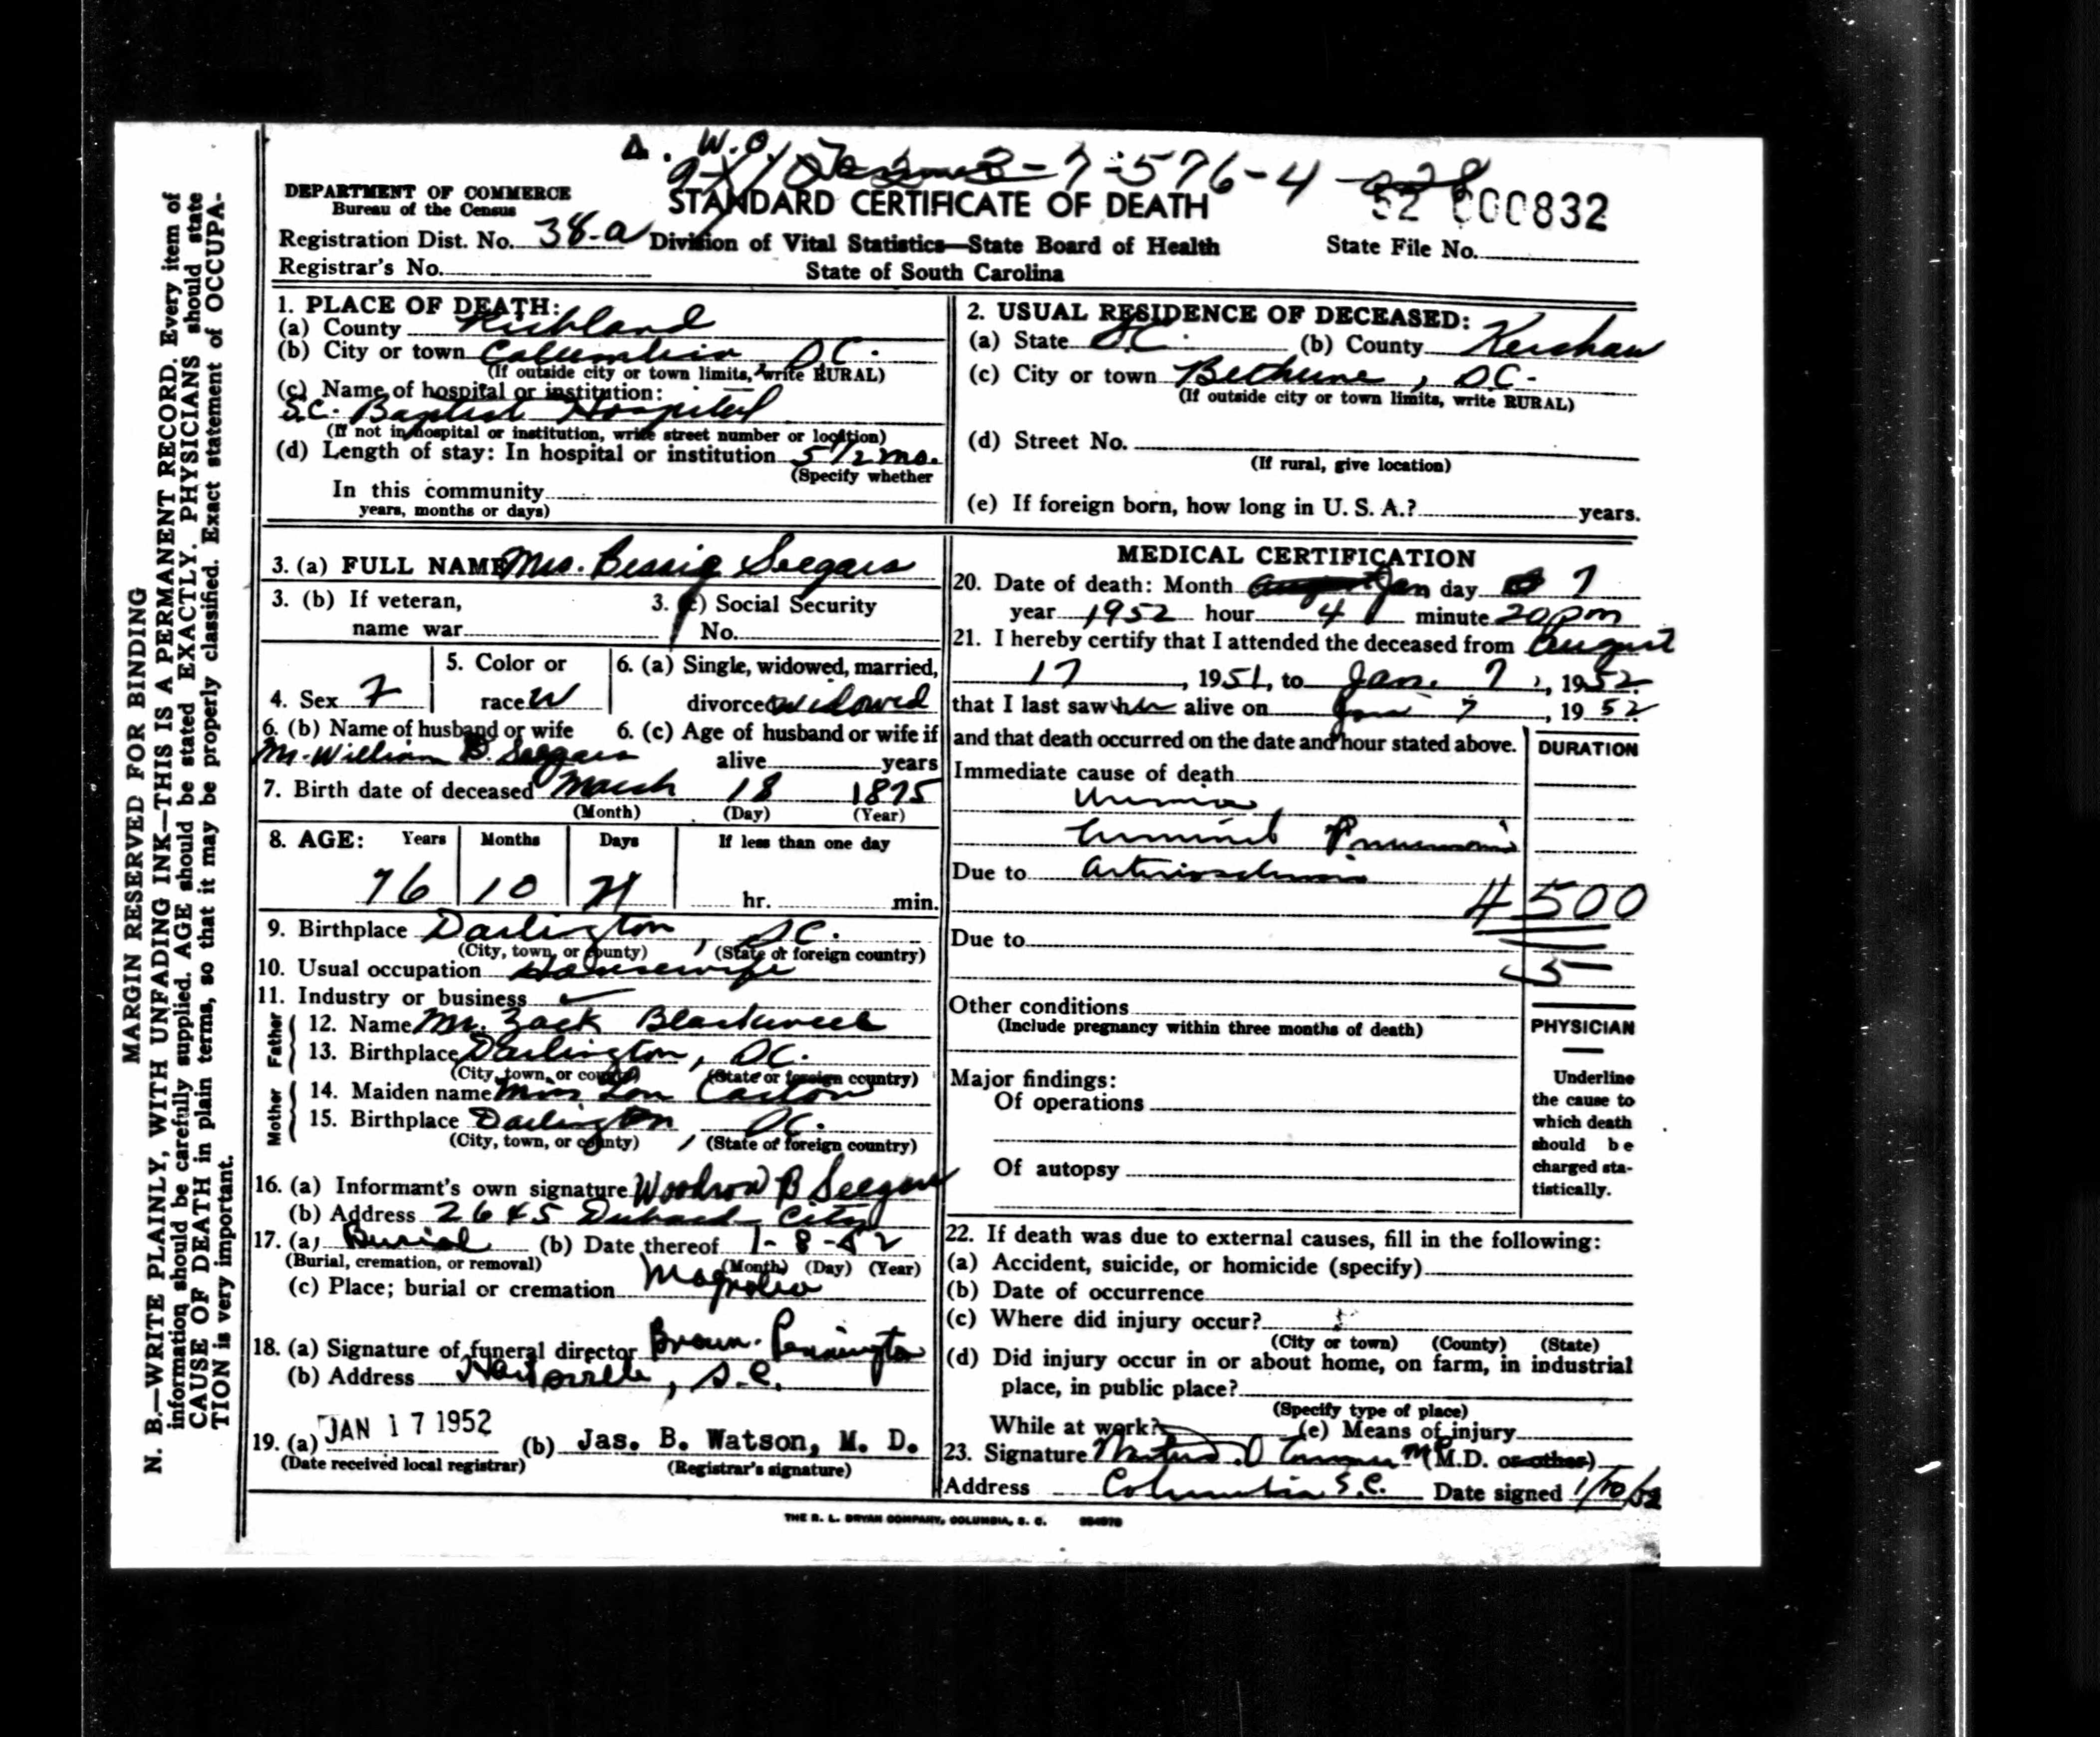 A. W.O.
DEPARTMENT OF COMMERCE
Bureau of the Census
STANDARD CERTIFICATE OF DEATH
52 000832
Registration Dist. No. 38-a Division of Vital Statistics—State Board of Health State File No.
Registrar's No. State of South Carolina
1. PLACE OF DEATH:
(a) County Richland
(b) City or town Columbia, S.C.
(If outside city or town limits, write RURAL)
(c) Name of hospital or institution:
S.C. Baptist Hospital
(If not in hospital or institution, write street number or location)
(d) Length of stay: In hospital or institution 5 1/2 mo.
(Specify whether
In this community
years, months or days)
2. USUAL RESIDENCE OF DECEASED:
(a) State S.C. (b) County Kershaw
(c) City or town Bethune, S.C.
(If outside city or town limits, write RURAL)
(d) Street No.
(If rural, give location)
(e) If foreign born, how long in U. S. A.? years.
3. (a) FULL NAME Mrs. Bessie Seegars
3. (b) If veteran, 3. (c) Social Security
name war No.
4. Sex F 5. Color or race W 6. (a) Single, widowed, married, divorced widowed
6. (b) Name of husband or wife 6. (c) Age of husband or wife if
Mr. William B. Seegars alive years
7. Birth date of deceased March 18 1875
(Month) (Day) (Year)
8. AGE: Years Months Days If less than one day
76 10 21 hr. min.
9. Birthplace Darlington, S.C.
(City, town, or county) (State or foreign country)
10. Usual occupation Housewife
11. Industry or business
Father
12. Name Mr. Zack Blackwell
13. Birthplace Darlington, S.C.
(City, town, or county) (State or foreign country)
Mother
14. Maiden name Miss Lou
15. Birthplace Darlington S.C.
(City, town, or county) (State or foreign country)
16. (a) Informant's own signature Woodrow B Seegars
(b) Address 2645 City
17. (a) Burial (b) Date thereof 1-8-52
(Burial, cremation, or removal) (Month) (Day) (Year)
(c) Place; burial or cremation Magnolia
18. (a) Signature of funeral director Brown-Pennington
(b) Address Hartsville, S.C.
19. (a) JAN 17 1952 (b) Jas. B. Watson, M. D.
(Date received local registrar) (Registrar's signature)
MEDICAL CERTIFICATION
20. Date of death: Month Jan day 7
year 1952 hour 4 minute 20 pm
21. I hereby certify that I attended the deceased from August
17, 1951, to Jan. 7, 1952.
that I last saw her alive on Jan 7, 19 52
and that death occurred on the date and hour stated above. DURATION
Immediate cause of death
Uremia
Terminal Pneumonia
Due to Arteriosclerosis
4500
Due to
5
Other conditions
(Include pregnancy within three months of death)
Major findings:
Of operations
Of autopsy
PHYSICIAN
Underline
the cause to
which death
should be
charged sta-
tistically.
22. If death was due to external causes, fill in the following:
(a) Accident, suicide, or homicide (specify)
(b) Date of occurrence
(c) Where did injury occur?
(City or town) (County) (State)
(d) Did injury occur in or about home, on farm, in industrial
place, in public place?
(Specify type of place)
While at work? (e) Means of injury
23. Signature (M.D. or other)
Address Columbia S.C. Date signed 1/10/52
THE R. L. BRYAN COMPANY, COLUMBIA, S. C.
MARGIN RESERVED FOR BINDING
N. B.—WRITE PLAINLY, WITH UNFADING INK—THIS IS A PERMANENT RECORD. Every item of
information should be carefully supplied. AGE should be stated EXACTLY. PHYSICIANS should state
CAUSE OF DEATH in plain terms, so that it may be properly classified. Exact statement of OCCUPA-
TION is very important.